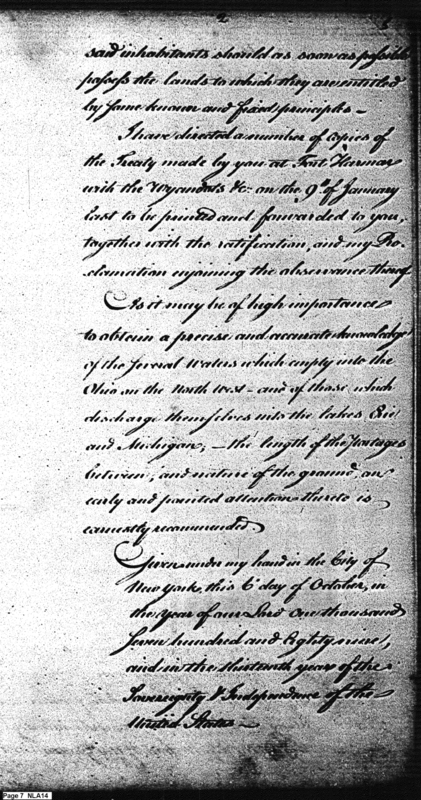 2
said inhabitants should as soon as possible
possess the lands to which they are entitled
by some known and fixed principles —
I have directed a number of copies of
the Treaty made by you at Fort Harmar
with the Wyandots &c. on the 9th of January
last to be printed and forwarded to you,
together with the ratification, and my Pro-
clamation enjoining the observance thereof
As it may be of high importance
to obtain a precise and accurate knowledge
of the several Waters which empty into the
Ohio on the North West — and of those which
discharge themselves into the lakes Erie
and Michigan; — the length of the Portages
between, and nature of the ground, an
early and pointed attention thereto is
earnestly recommended.
Given under my hand in the City of
New York, this 6th day of October, in
the year of our Lord One thousand
seven hundred and Eighty nine,
and in the thirteenth year of the
Sovereignty & Independence of the
United States —
Page 7 NLA14